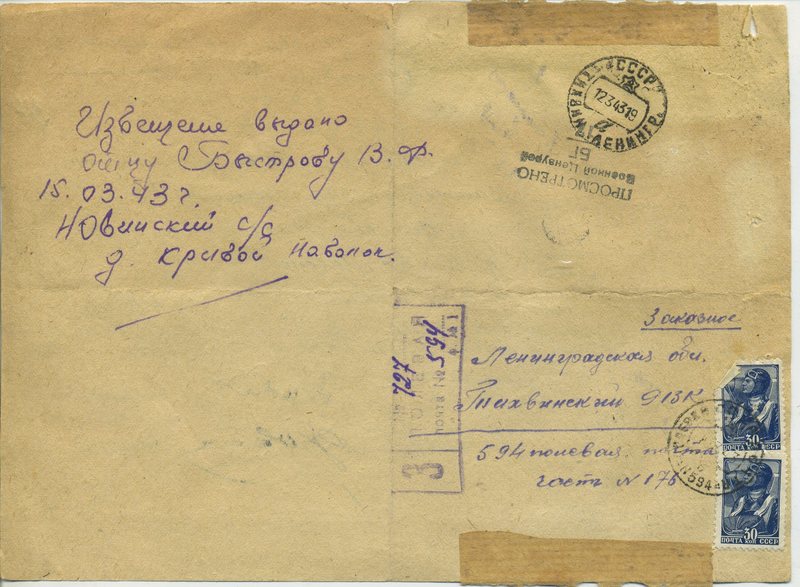 Извещение выдано
отцу Быстрову В. Ф.
15. 03. 43 г.
Новинский с/с
д. Кривой Наволок.
СССР
12 3 43 19
ПРОСМОТРЕНО
Военной Цензурой
БГ
Заказное
Ленинградская обл.
Тихвинский РВК
594 полевая почта
часть N 176
З
ПОЛЕВАЯ
почта №
594
№ 1
797
30
ПОЧТА КОП СССР
30
ПОЧТА КОП СССР